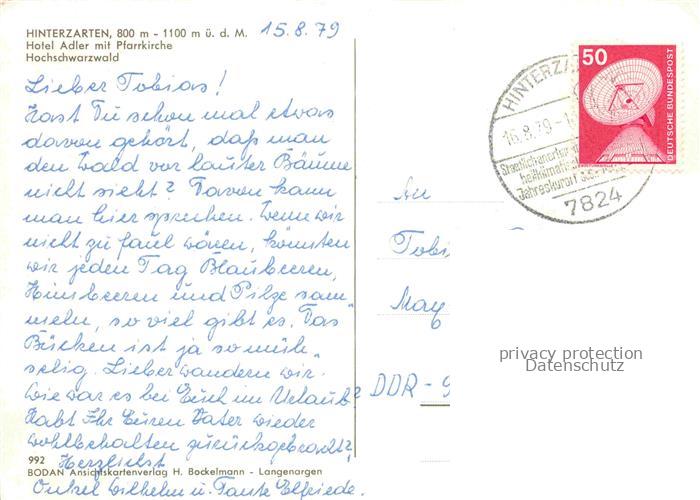 HINTERZARTEN, 800 m - 1100 m ü. d. M. 15.8.79
Hotel Adler mit Pfarrkirche
Hochschwarzwald
Lieber Tobias!
Hast Du schon mal etwas
davon gehört, daß man
den Wald vor lauter Bäume
nicht sieht? Davon kann
man hier sprechen. Wenn wir
nicht zu faul wären, könnten
wir jeden Tag Blaubeeren,
Himbeeren und Pilze sam-
meln, so viel gibt es. Das
Bücken ist ja so müh-
selig. Lieber wandern wir.
Wie war es bei Euch im Urlaub?
Habt Ihr Euren Vater wieder
wohlbehalten zurückgebracht?
Herzlichst
Onkel Wilhelm u. Tante Elfriede.
992
BODAN Ansichtskartenverlag H. Bockelmann - Langenargen
50
DEUTSCHE BUNDESPOST
HINTERZA
16.8.79-1
Staatlich anerk
heilklimati
Jahreskurort
7824
An
Tobi
May
DDR - 9
privacy protection
Datenschutz